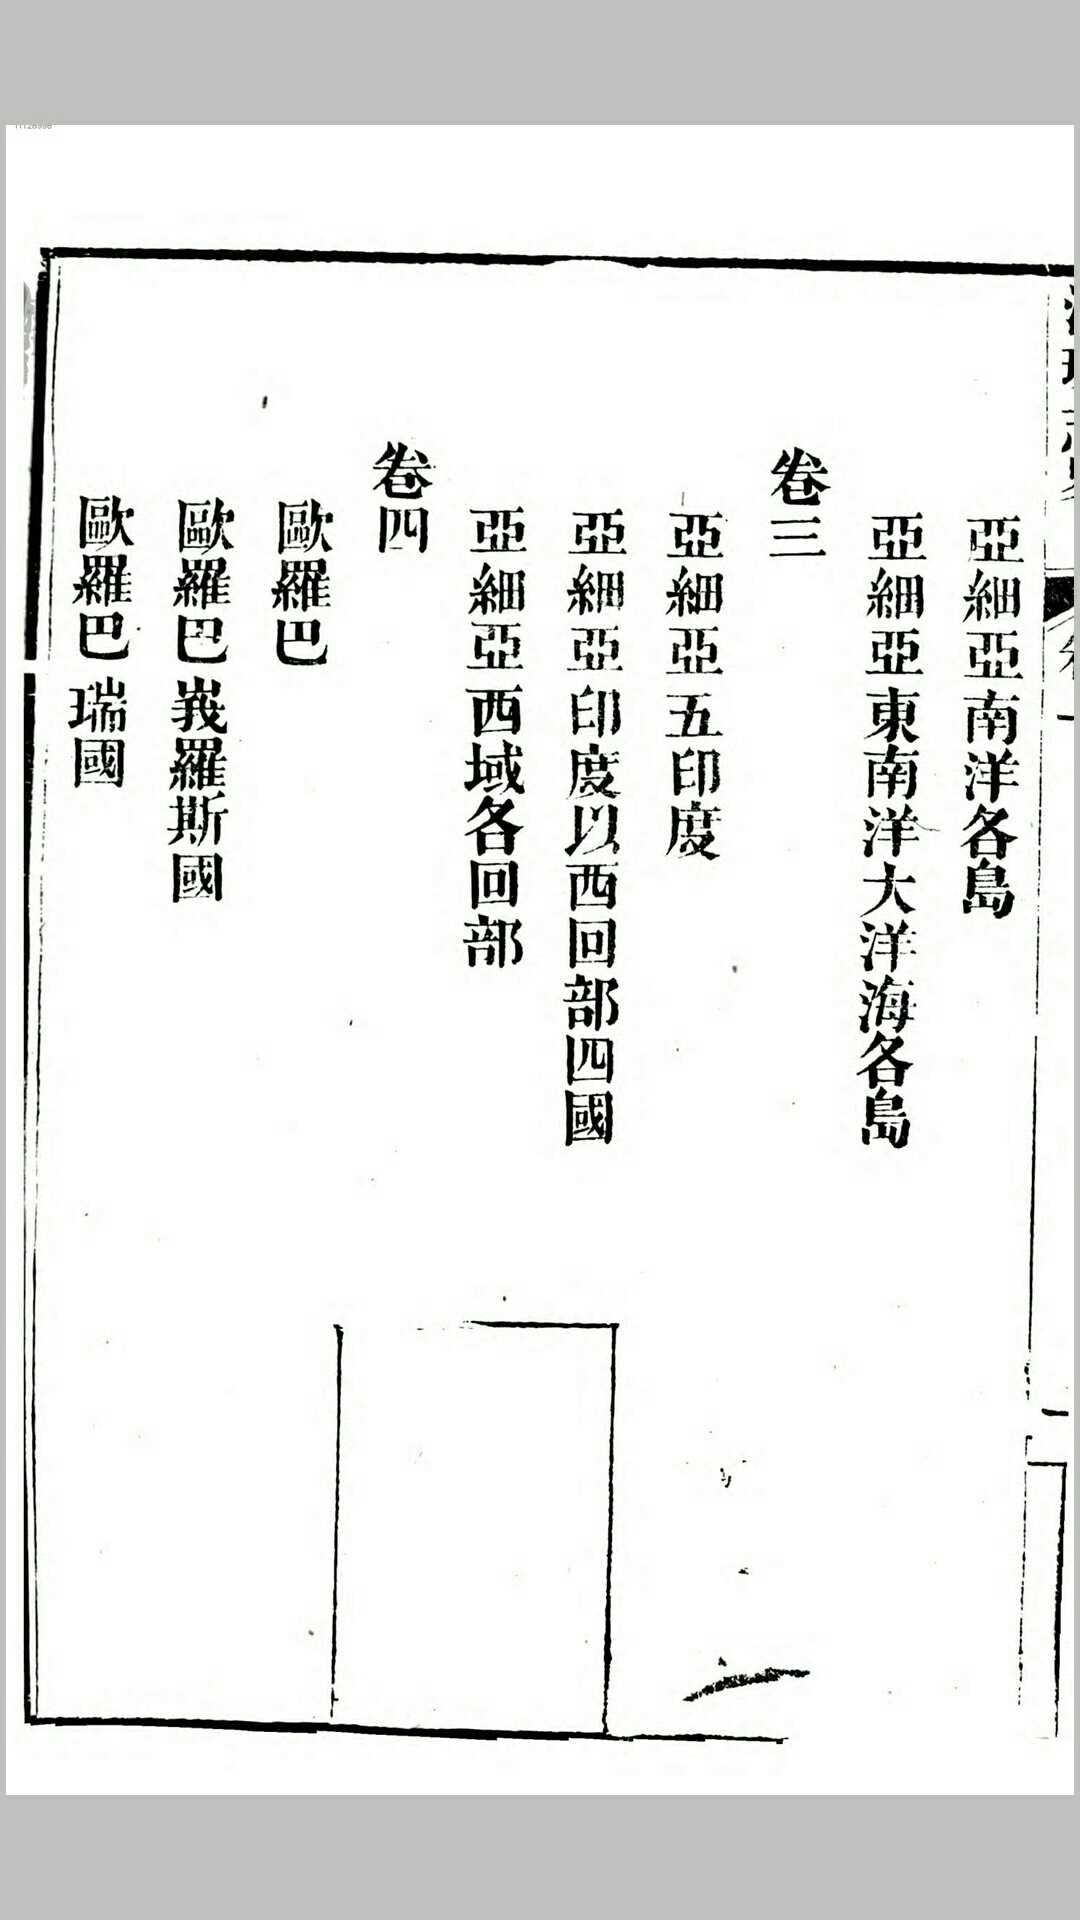 亞細亞南洋各島
亞細亞東南洋大洋海各島
卷三
亞細亞五印度
亞細亞印度以西回部四國
亞細亞西域各回部
卷四
歐羅巴
歐羅巴峩羅斯國
歐羅巴瑞國